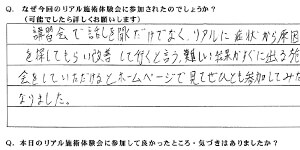 Q. なぜ今回のリアル施術体験会に参加されたのでしょうか?
(可能でしたら詳しくお願いします)
講習会で話しを聞くだけでなく、リアルに症状から原因
を探してもらい改善して行くと言う、難しい結果がすぐに出る発
会をしていただけるとホームページで見てぜひとも参加してみた
なりました。
Q. 本日のリアル施術体験会に参加して良かったところ・気づきはありましたか?